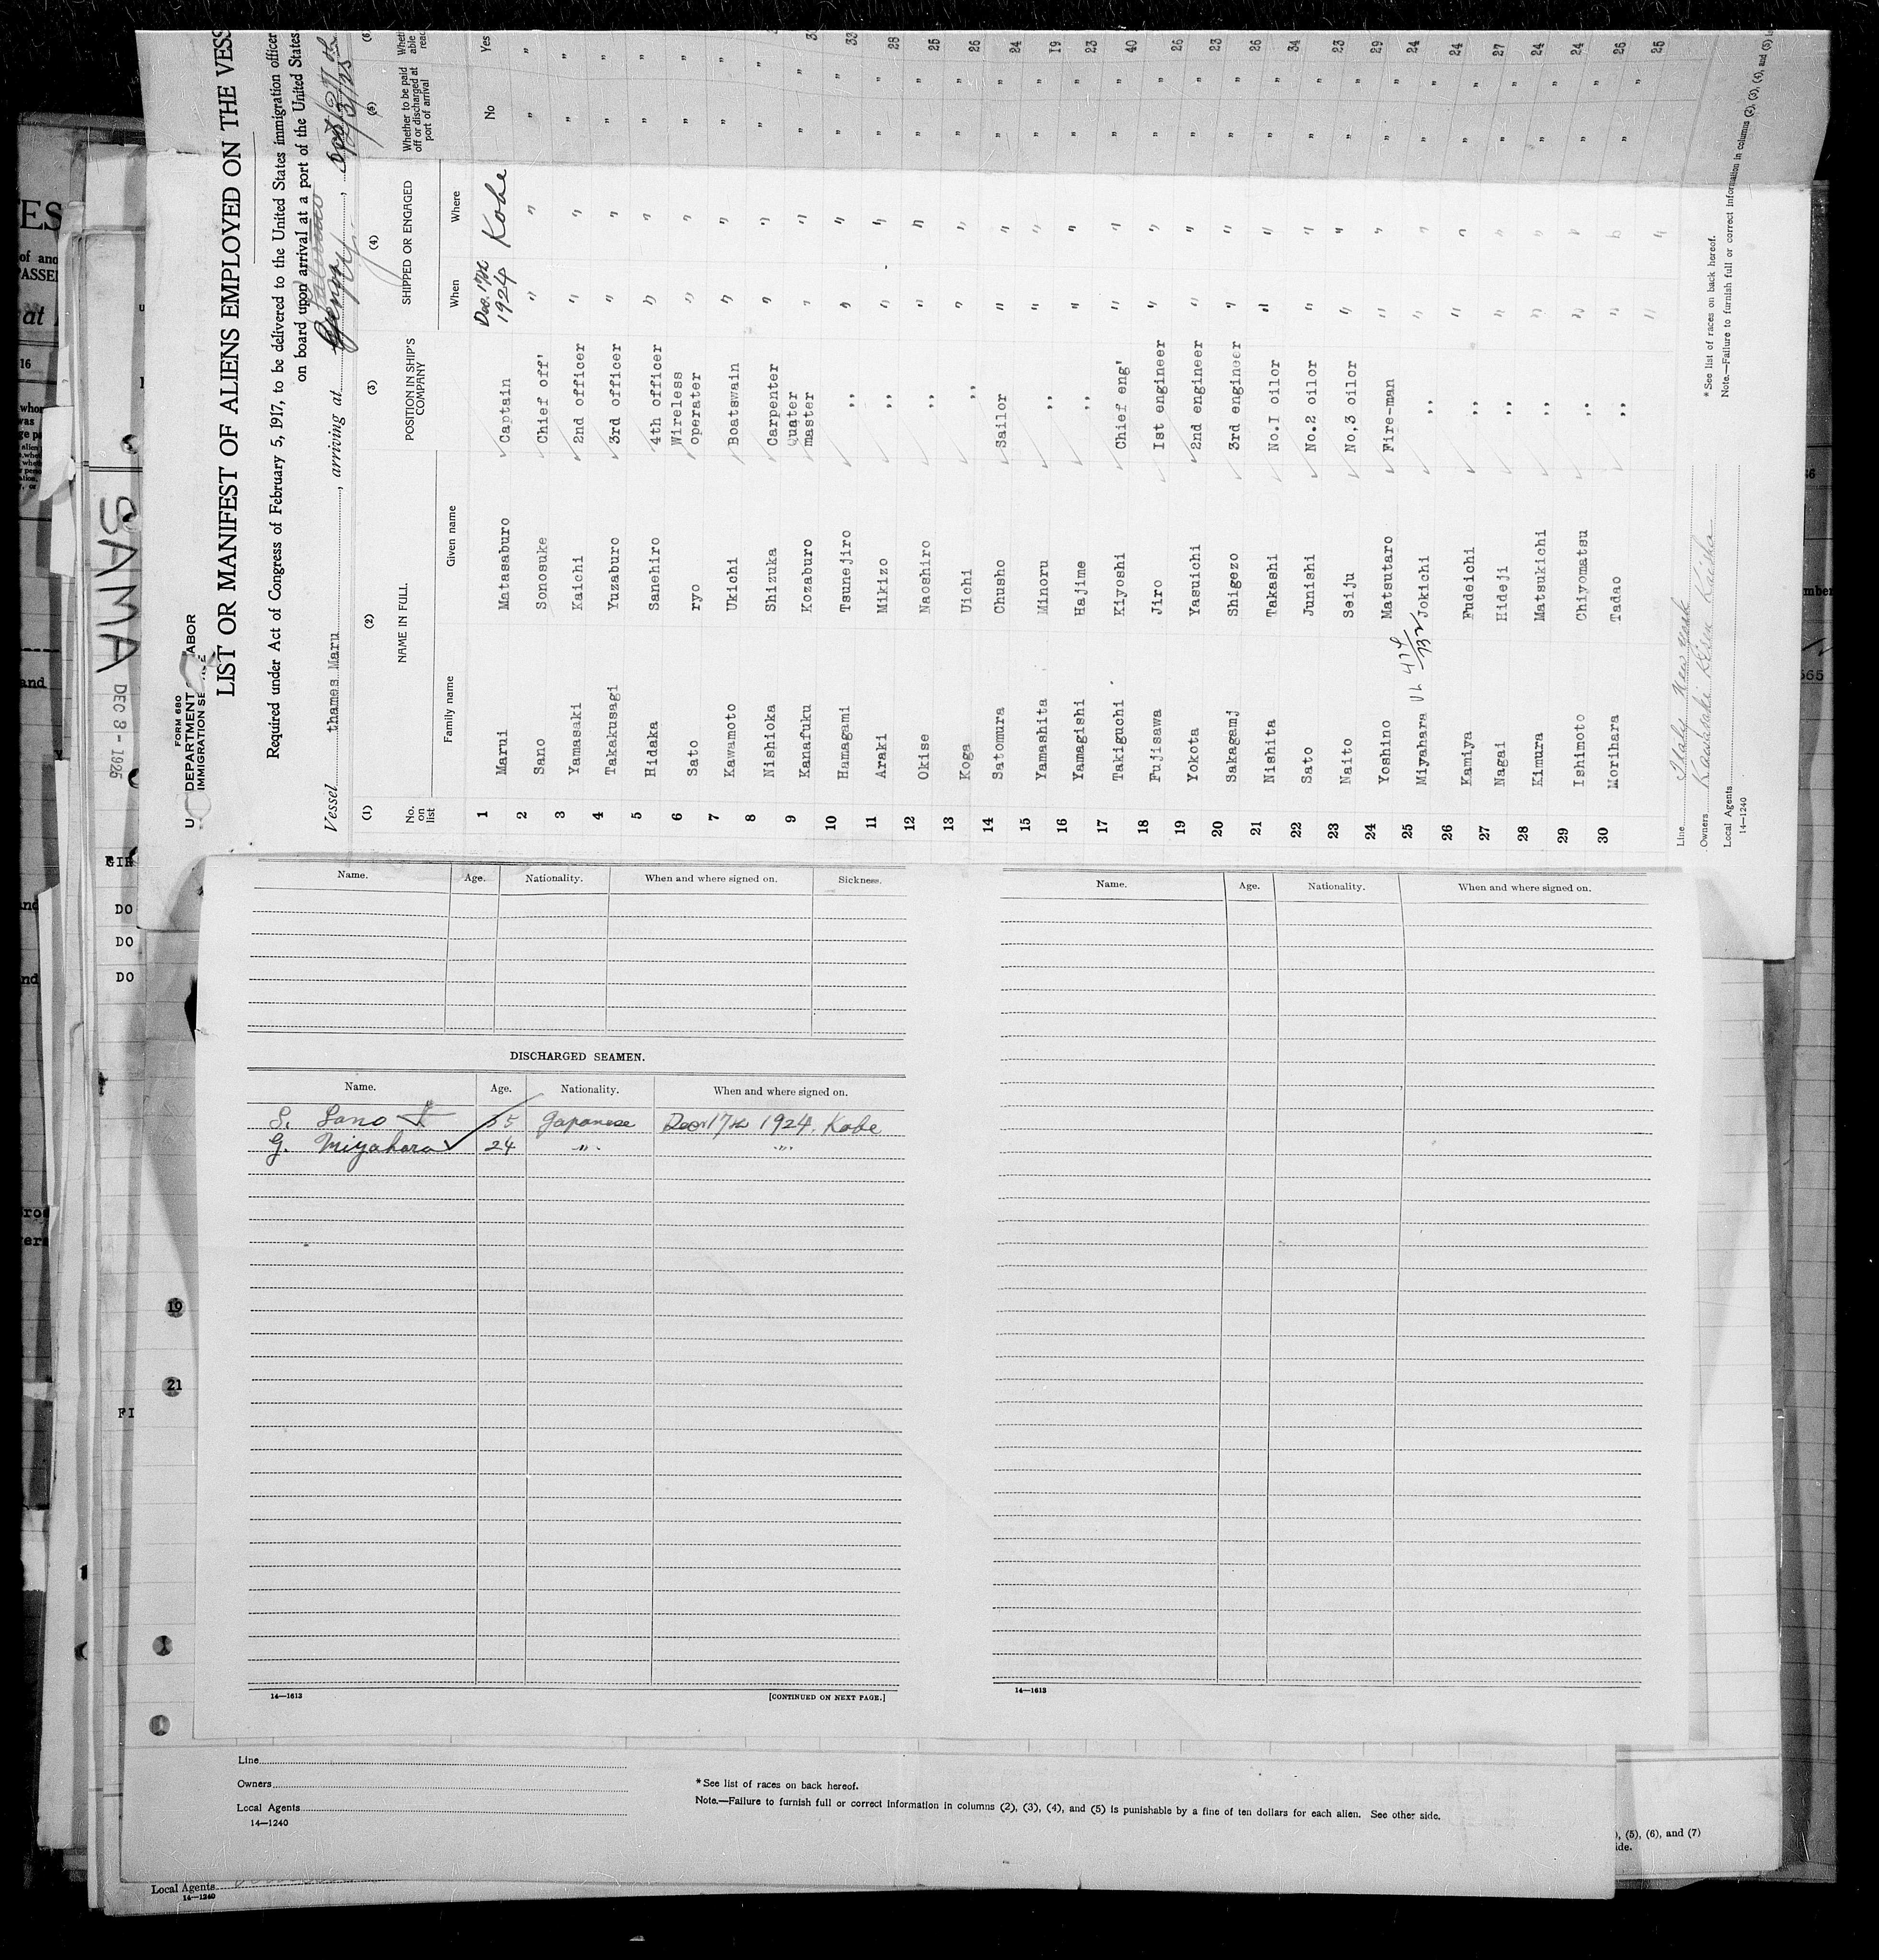 FORM 680
DEPARTMENT
ABOR
IMMIGRATION SE
LIST OR MANIFEST OF ALIENS EMPLOYED ON THE VESS
Required under Act of Congress of February 5, 1917, to be delivered to the United States immigration officer
on board upon arrival at a port of the United States
Vessel thames Maru, arriving at
(1) (2) (3) (4) (5) (6)
No. on list
NAME IN FULL
Family name Given name
POSITION IN SHIP'S COMPANY
SHIPPED OR ENGAGED
When Where
Whether to be paid off or discharged at port of arrival
1 Marui Matasaburo Captain Dec. 17th 1924 Kobe No Yes
2 Sano Sonosuke Chief off' " " " "
3 Yamasaki Kaichi 2nd officer " " " "
4 Takakusagi Yuzaburo 3rd officer " " " "
5 Hidaka Sanehiro 4th officer " " " "
6 Sato ryo Wireless operater " " " "
7 Kawamoto Ukichi Boatswain " " " "
8 Nishioka Shizuka Carpenter " " " "
9 Kanafuku Kozaburo Quater master " " " "
10 Hamagami Tsunejiro ,, " " " " 33
11 Araki Mikizo ,, " " " " 28
12 Okise Naoshiro ,, " " " " 25
13 Koga Uichi ,, " " " " 26
14 Satomura Chusho Sailor " " " " 24
15 Yamashita Minoru ,, " " " " 19
16 Yamagishi Hajime ,, " " " " 23
17 Takiguchi Kiyoshi Chief eng' " " " " 40
18 Fujisawa Jiro 1st engineer " " " " 26
19 Yokota Yasuichi 2nd engineer " " " " 23
20 Sakagamj Shigezo 3rd engineer " " " " 26
21 Nishita Takashi No.1 oilor " " " " 34
22 Sato Junishi No.2 oilor " " " " 23
23 Naito Seiju No.3 oilor " " " " 29
24 Yoshino Matsutaro Fire-man " " " " 24
25 Miyahara Jokichi ,, " " " " 24
26 Kamiya Fudeichi ,, " " " " 27
27 Nagai Hideji ,, " " " " 24
28 Kimura Matsukichi ,, " " " " 24
29 Ishimoto Chiyomatsu ,, " " " " 26
30 Morihara Tadao ,, " " " " 25
Line Italy New york
Owners Kawasaki Kisen Kaisha
Local Agents
14—1240
* See list of races on back hereof.
Note.—Failure to furnish full or correct information in columns (2), (3), (4), and (5)
SAMA
DEC 8 - 1925
DO
DO
DO
19
21
FI
Name. Age. Nationality. When and where signed on. Sickness.
DISCHARGED SEAMEN.
Name. Age. Nationality. When and where signed on.
S. Sano 55 Japanese Dec 17th 1924. Kobe
G. Miyahara 24 " "
14—1613
[CONTINUED ON NEXT PAGE.]
Name. Age. Nationality. When and where signed on.
14—1613
Line
Owners
Local Agents
14—1240
* See list of races on back hereof.
Note.—Failure to furnish full or correct information in columns (2), (3), (4), and (5) is punishable by a fine of ten dollars for each alien. See other side.
), (5), (6), and (7)
ide.
Local Agents
14—1240